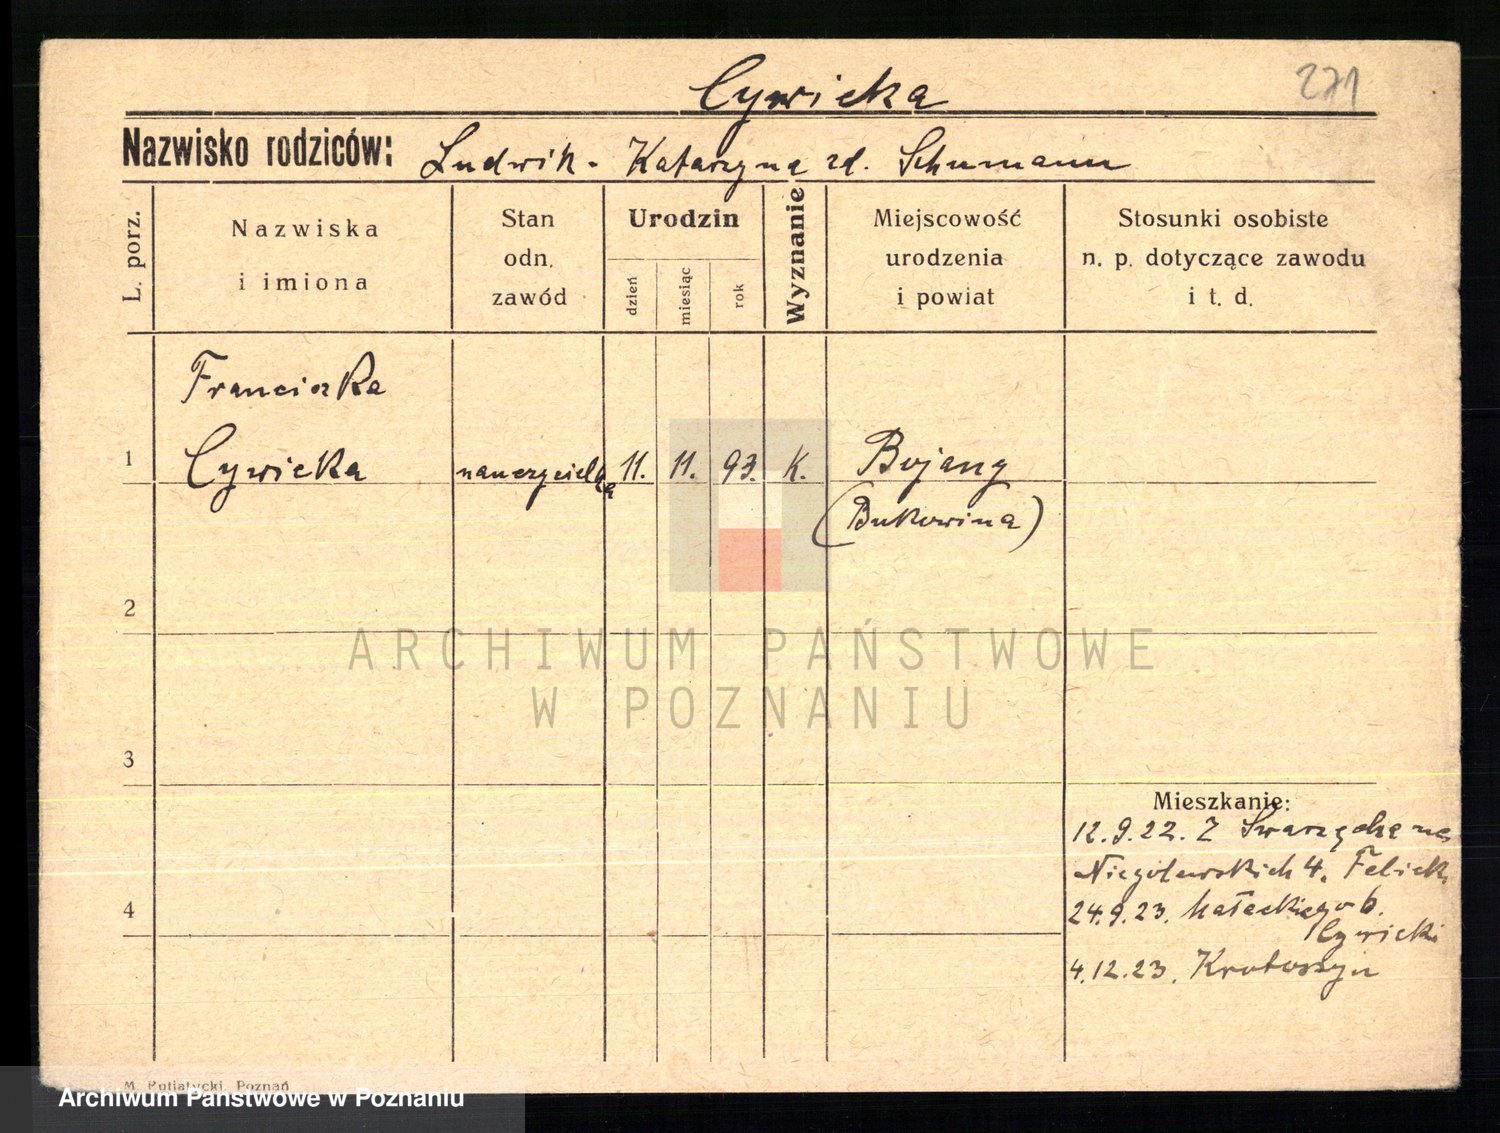 Cywicka
271
Nazwisko rodziców: Ludwik - Katarzyna zd. Schumann
L. porz.
Nazwiska
i imiona
Stan
odn.
zawód
Urodzin
dzień
miesiąc
rok
Wyznanie
Miejscowość
urodzenia
i powiat
Stosunki osobiste
n. p. dotyczące zawodu
i t. d.
Franciszka
1 Cywicka nauczycielka 11. 11. 93. K. Bojany
(Bukowina)
2
3
4
Mieszkanie:
12.9.22. Z Swarzędza na
Niegolewskich 4.
24.9.23. Małeckiego 6.
Cywicki
4.12.23. Krotoszyn
ARCHIWUM PAŃSTWOWE
W POZNANIU
M. Putiatycki, Poznań
Archiwum Państwowe w Poznaniu